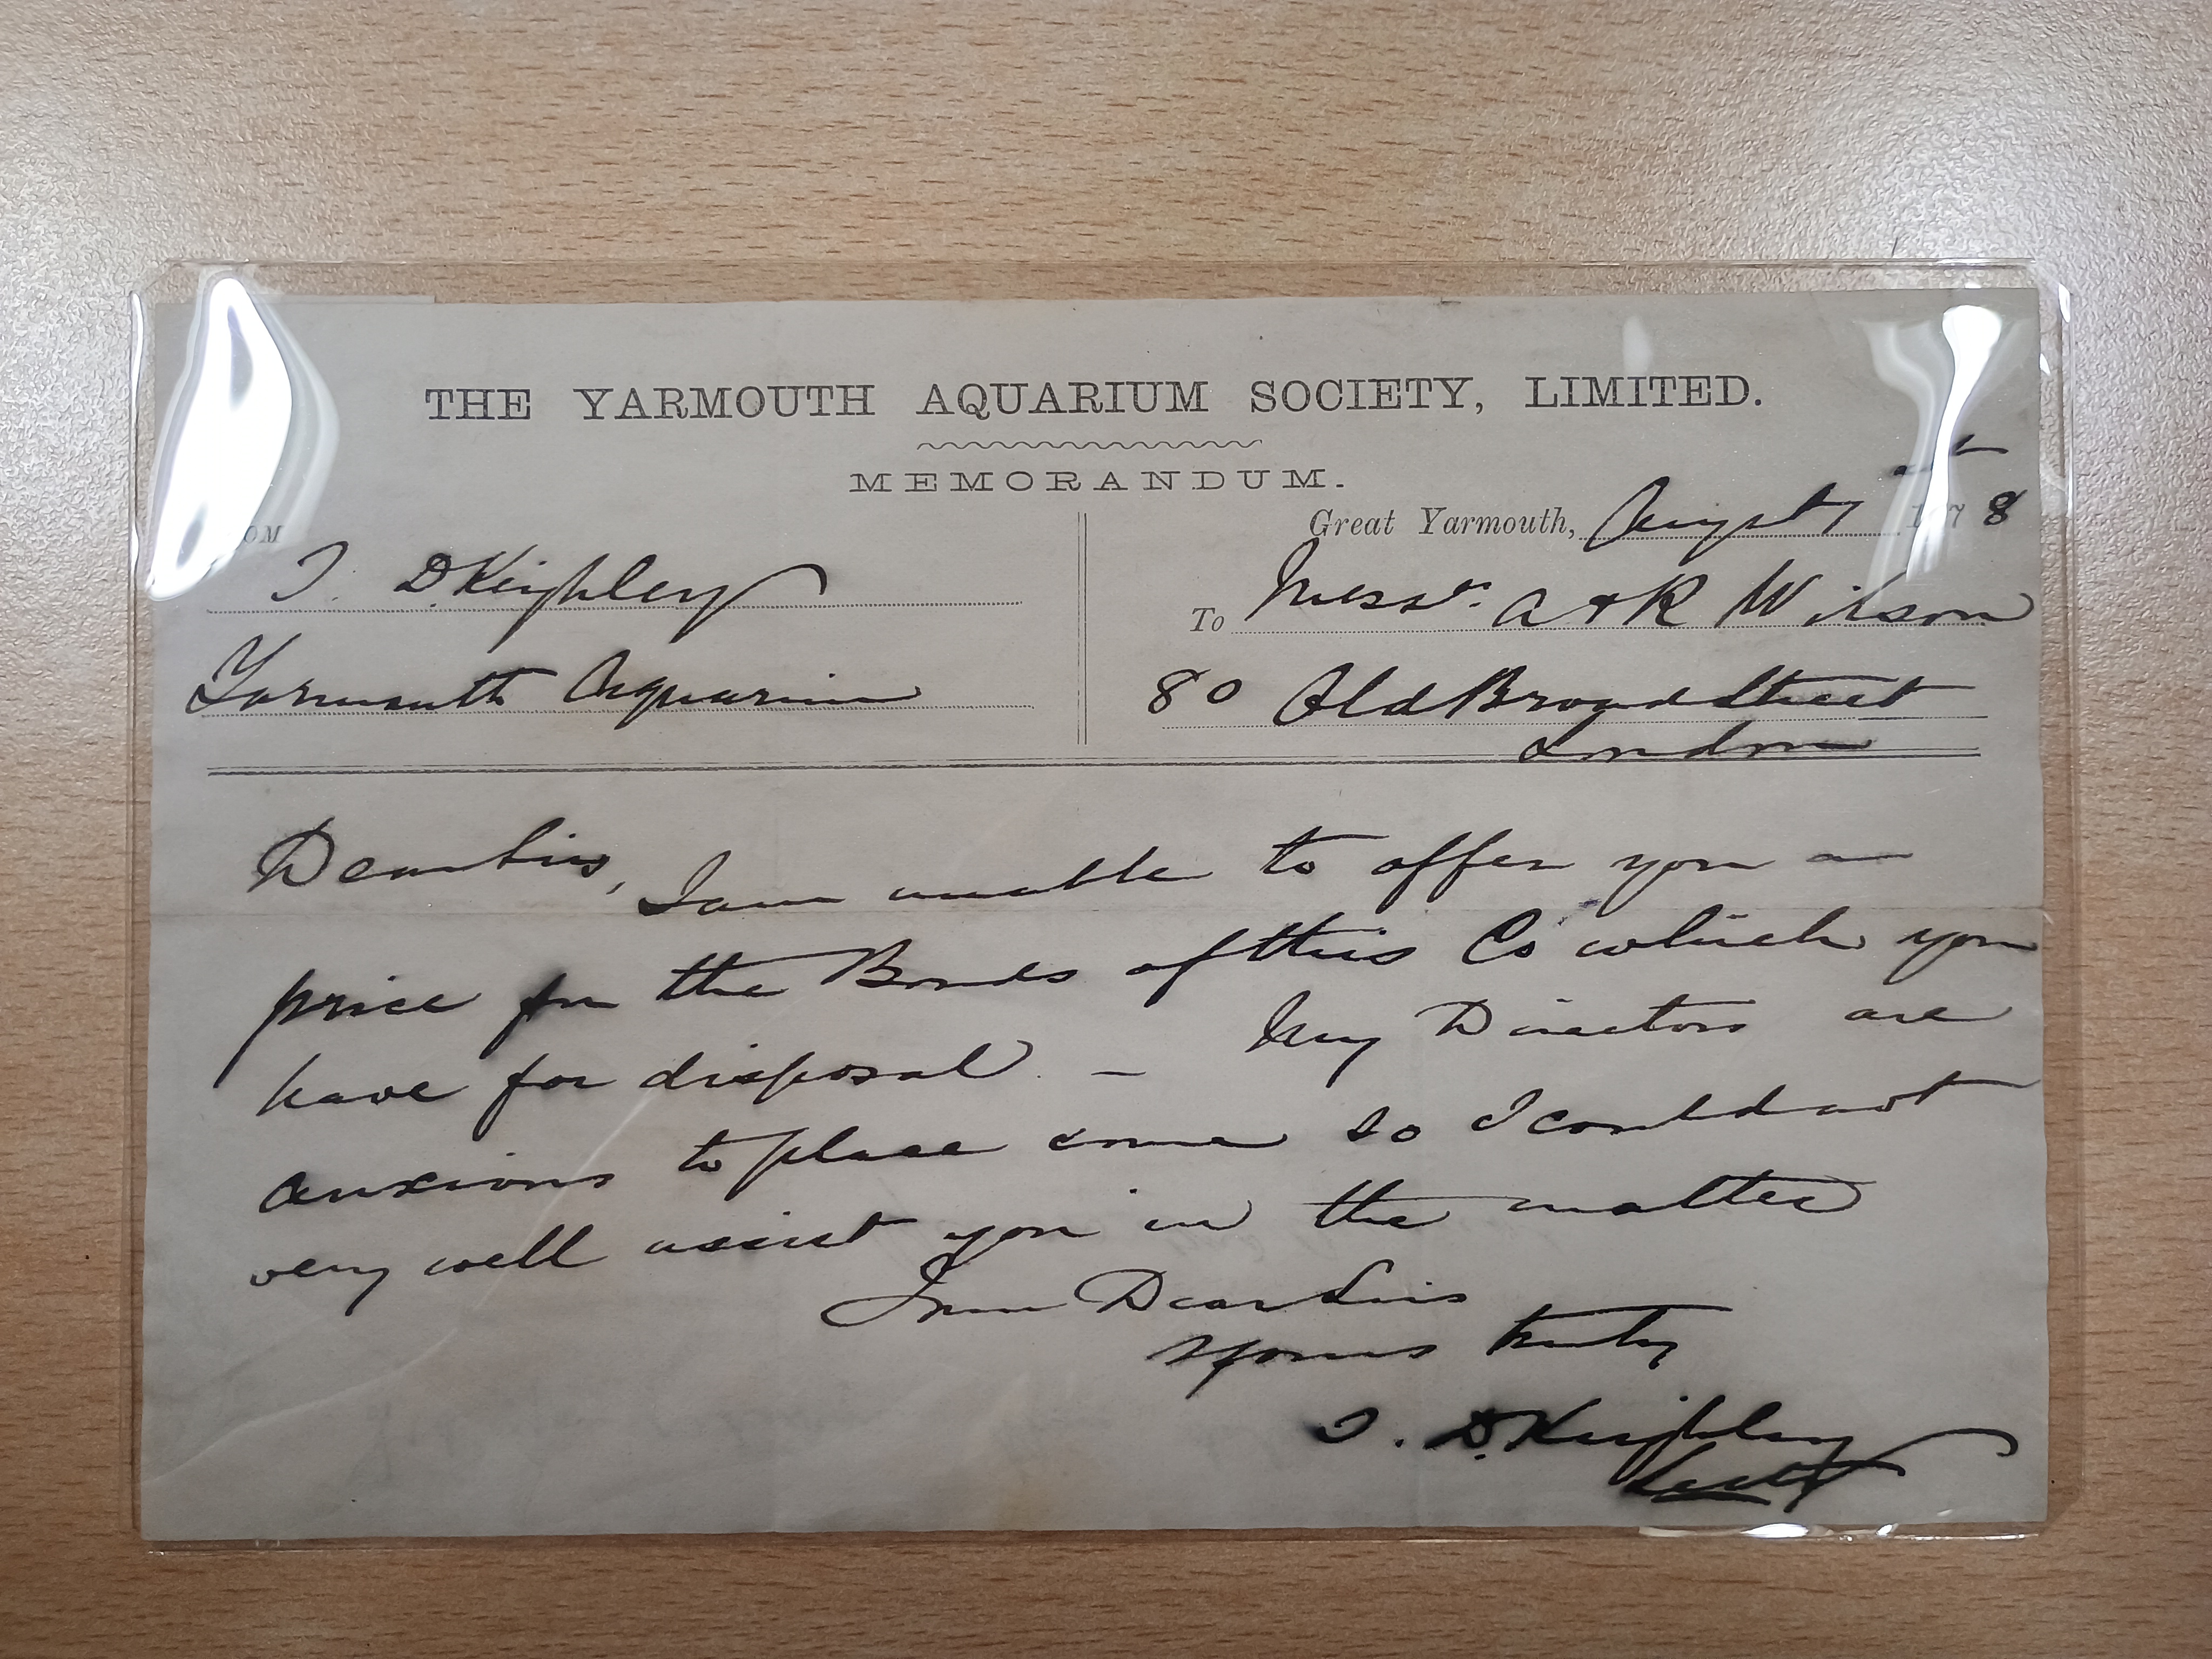 THE YARMOUTH AQUARIUM SOCIETY, LIMITED.
MEMORANDUM.
Great Yarmouth, August 7th 1878
T. D. Keighley
To Messrs. A & R Wilson
Yarmouth Aquarium
80 Old Broad Street
London
Dear Sirs,
I am unable to offer you a
price for the Bonds of this Co which you
have for disposal. — My Directors are
anxious to place some so I could not
very well assist you in the matter
I am Dear Sirs
Yours truly
T. D. Keighley
Secty